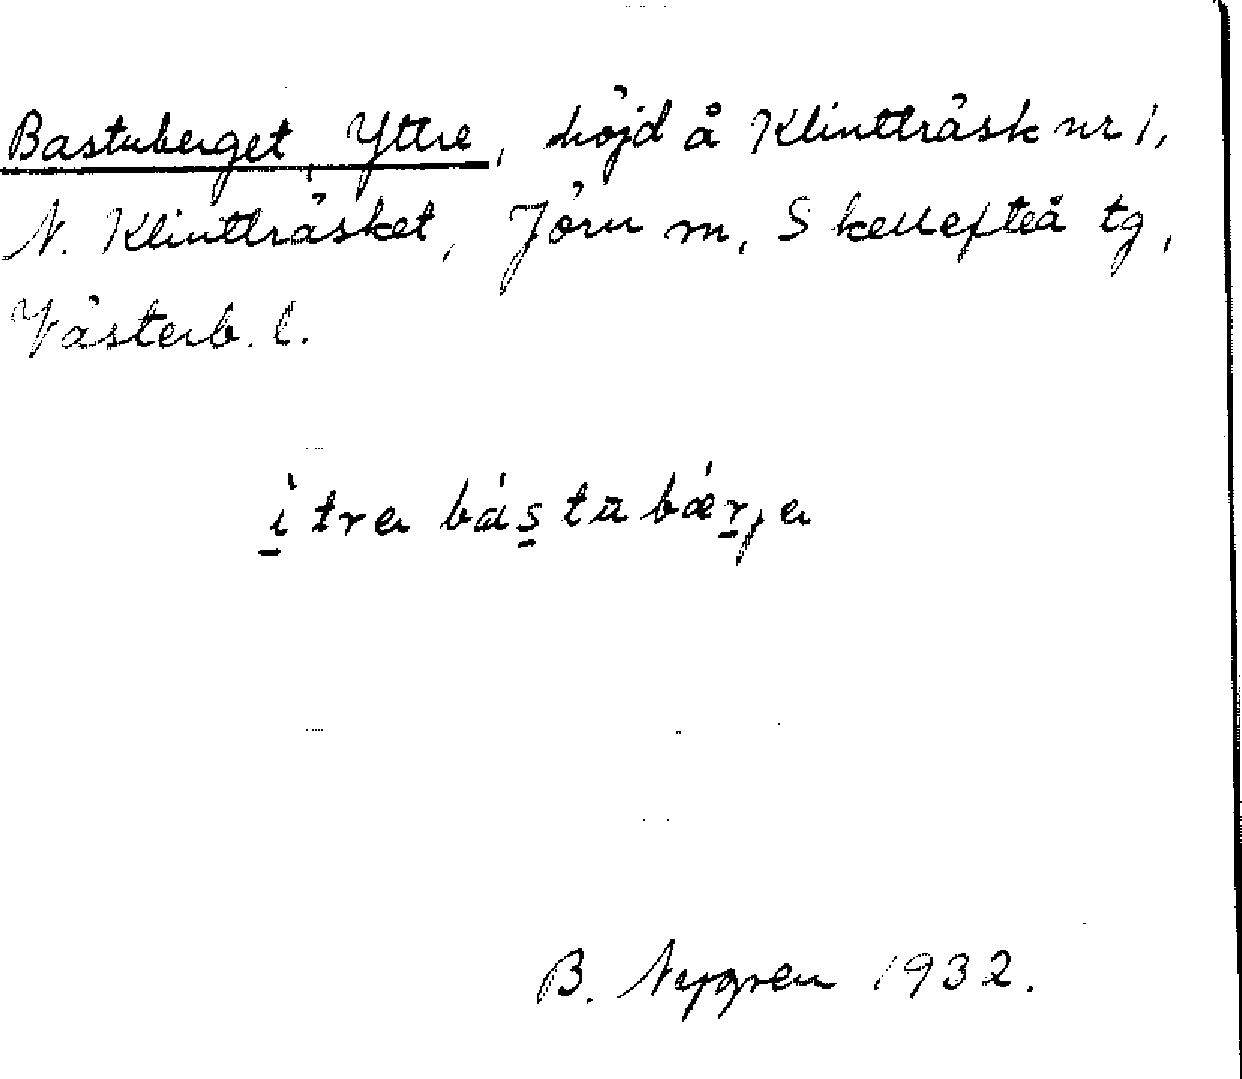 Bastuberget, Yttre, höjd å Klintträsk nr 1,
N. Klintträsket, Jörn sn, Skellefteå tg,
Västerb. l.
ìtrɐ bástubǽrjɐ
B. Nygren 1932.